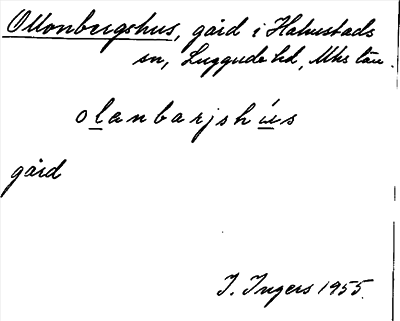 Ollonbergshus, gård i Halmstads
sn, Luggude hd, Mhs län.
olanbarjshús
gård
I. Ingers 1955.